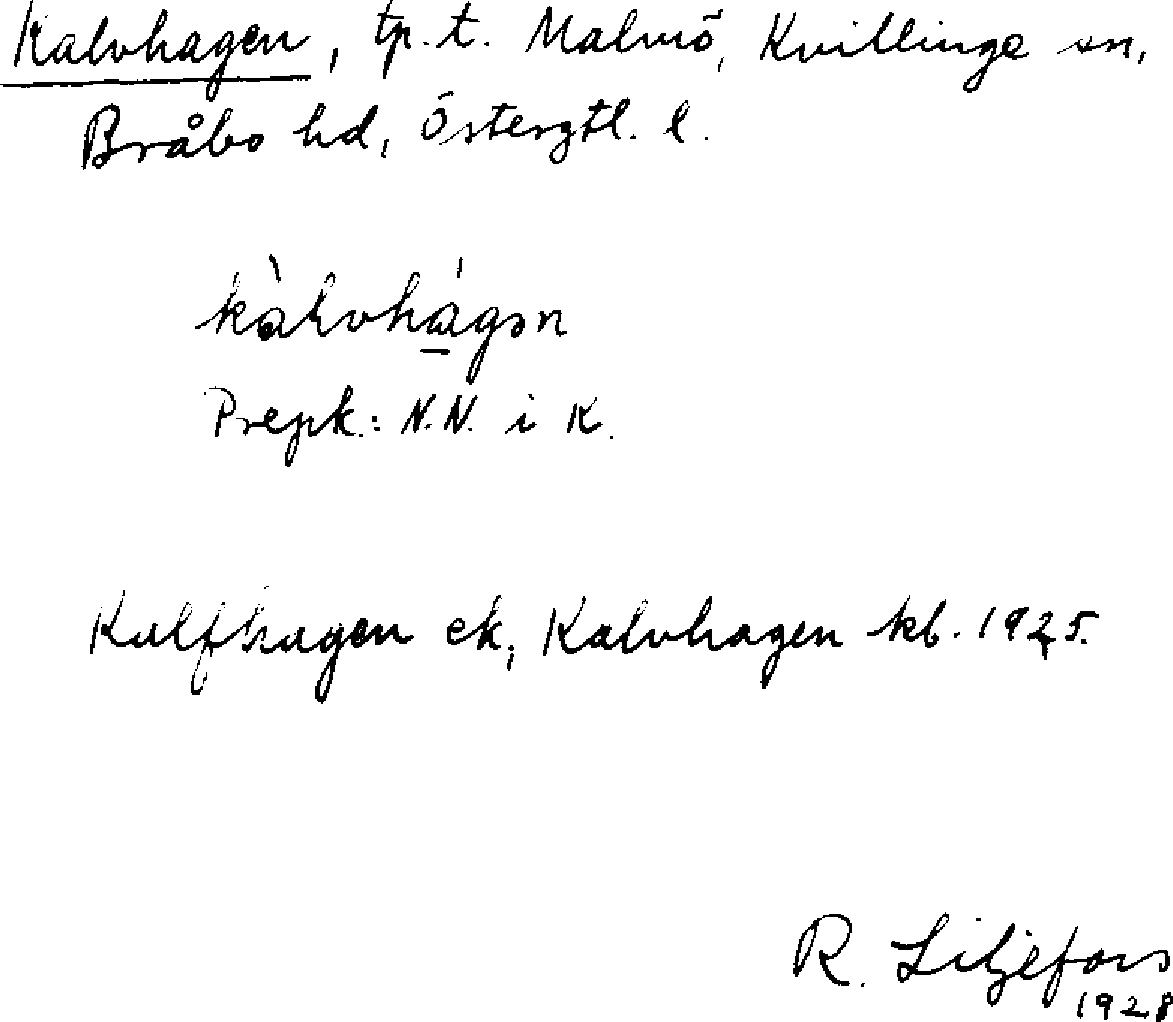 Kalvhagen, tp. t. Malmö, Kvillinge sn,
Bråbo hd, Östergtl. l.
kàlvhágən
Prepk.: N.N. i K.
Kalfhagen ek, Kalvhagen kb. 1925.
R. Liljefors
1928